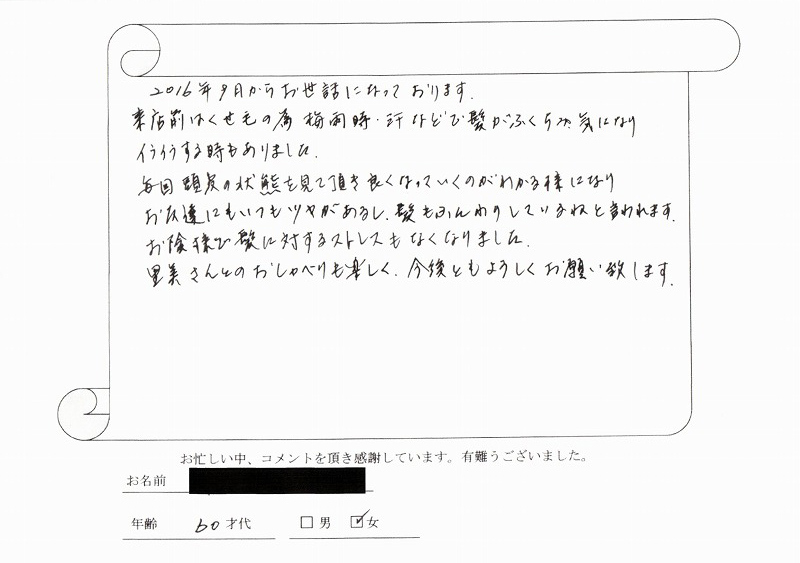 2016年9月からお世話になっております。
来店前はくせ毛の為 梅雨時・汗などで髪がふくらみ気になり
イライラする時もありました。
毎回 頭皮の状態を見て頂き良くなっていくのがわかる様になり
お友達にもいつもツヤがあるし、髪もふんわりしているねと言われます。
お陰様で髪に対するストレスもなくなりました。
里美さんとのおしゃべりも楽しく、今後ともよろしくお願い致します。
お忙しい中、コメントを頂き感謝しています。有難うございました。
お名前
年齢 60才代 □男 ☑女